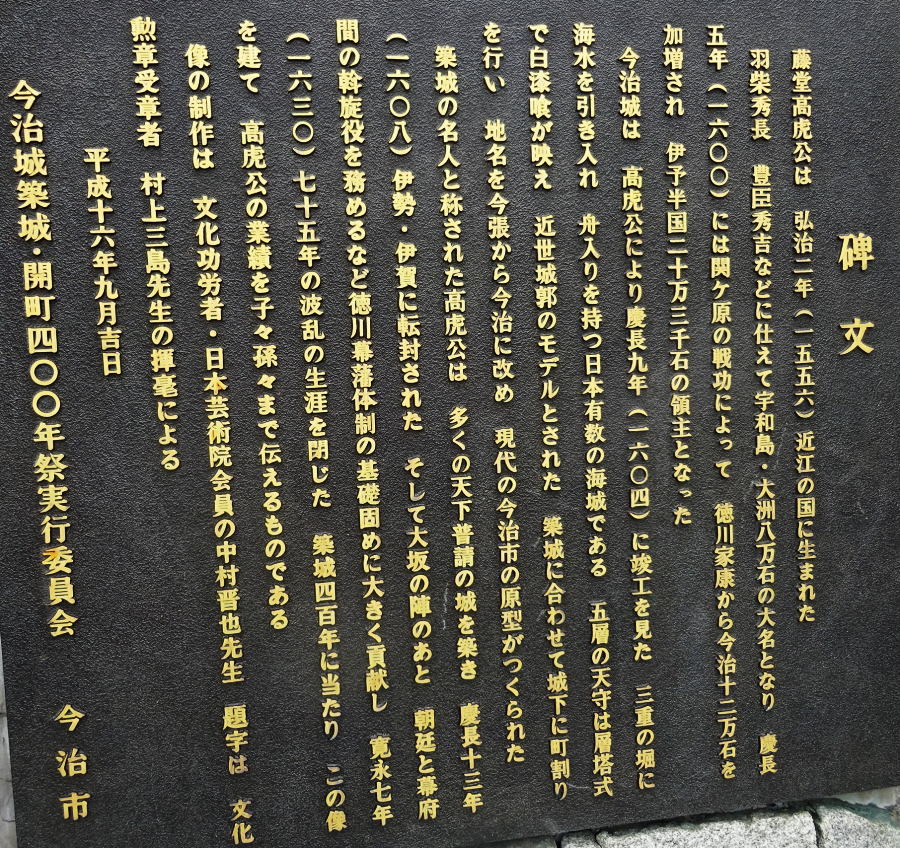 碑文
藤堂高虎公は　弘治二年（一五五六）近江の国に生まれた
羽柴秀長　豊臣秀吉などに仕えて宇和島・大洲八万石の大名となり　慶長
五年（一六〇〇）には関ケ原の戦功によって　徳川家康から今治十二万石を
加増され　伊予半国二十万三千石の領主となった
今治城は　高虎公により慶長九年（一六〇四）に竣工を見た　三重の堀に
海水を引き入れ　舟入りを持つ日本有数の海城である　五層の天守は層塔式
で白漆喰が映え　近世城郭のモデルとされた　築城に合わせて城下に町割り
を行い　地名を今張から今治に改め　現代の今治市の原型がつくられた
築城の名人と称された高虎公は　多くの天下普請の城を築き　慶長十三年
（一六〇八）伊勢・伊賀に転封された　そして大坂の陣のあと　朝廷と幕府
間の斡旋役を務めるなど徳川幕藩体制の基礎固めに大きく貢献し　寛永七年
（一六三〇）七十五年の波乱の生涯を閉じた　築城四百年に当たり　この像
を建て　高虎公の業績を子々孫々まで伝えるものである
像の制作は　文化功労者・日本芸術院会員の中村晋也先生　題字は　文化
勲章受章者　村上三島先生の揮毫による
平成十六年九月吉日
今治城築城・開町四〇〇年祭実行委員会　今治市